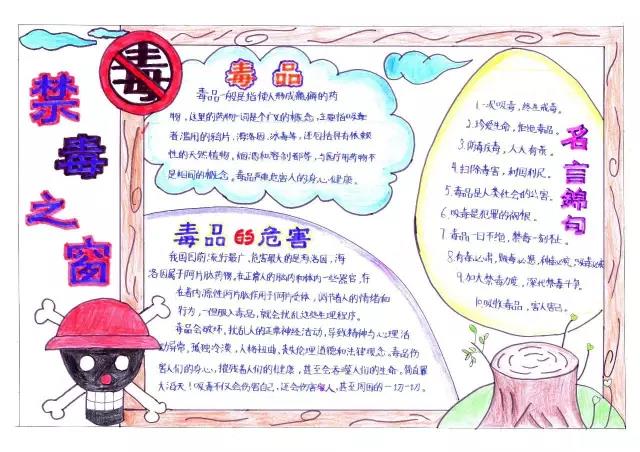 禁毒之窗
毒
毒品
毒品一般是指使人形成瘾癖的药
物，这里的药物一词是个广义的概念，主要指吸毒
者滥用的鸦片、海洛因、冰毒等，还包括具有依赖
性的天然植物、烟、酒和溶剂等，与医疗用药物不
是相同的概念。毒品严重危害人的身心健康。
毒品的危害
我国目前流行最广、危害最大的是海洛因，海
洛因属于阿片肽药物。在正常人的脑内和体内一些器官，存
在着内源性阿片肽作用于阿片受体，调节着人的情绪和
行为，一但服入毒品，就会扰乱这些生理程序。
毒品会破坏、扰乱人的正常神经活动，导致精神与心理活
动异常，孤独冷漠，人格扭曲，丧失伦理道德和法律观念。毒品伤
害人们的身心，摧残着人们的健康，甚至会吞噬人们的生命，简直罪
大滔天！吸毒不仅会伤害自己，还会伤害家人，甚至周围的一切一切。
名言锦句
1.一次吸毒，终生戒毒。
2.珍爱生命，拒绝毒品。
3.防毒反毒，人人有责。
4.扫除毒害，利国利民。
5.毒品是人类社会的公害。
6.吸毒是犯罪的祸根。
7.毒品一日不绝，禁毒一刻不止。
8.有毒必肃，贩毒必惩，种毒必究，吸毒必戒
9.加大禁毒力度，深化禁毒斗争。
10.吸收毒品，害人害己。